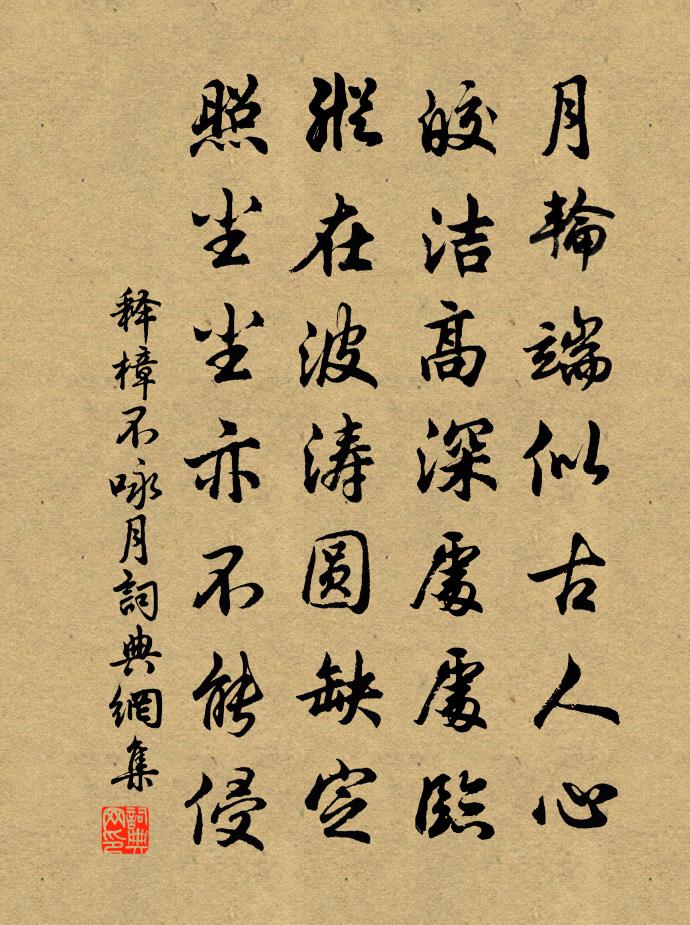 月輪端似古人心
皎洁高深處處臨
縱在波涛圆缺定
照尘尘亦不能侵
释樟不咏月詞典網集
詞典網印